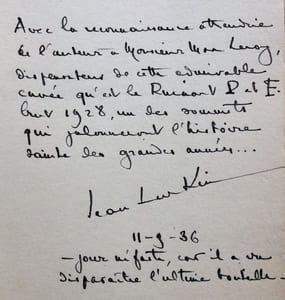 Avec la reconnaissance attendrie
de l'auteur à Monsieur Marc Leroy,
dispensateur de cette admirable
cuvée qu'est le Ruinart P. et F.
brut 1928, un des sommets
qui jalonneront l'histoire
sainte des grandes années...
Jean
11-9-36
– jour néfaste, car il a vu
disparaître l'ultime bouteille –